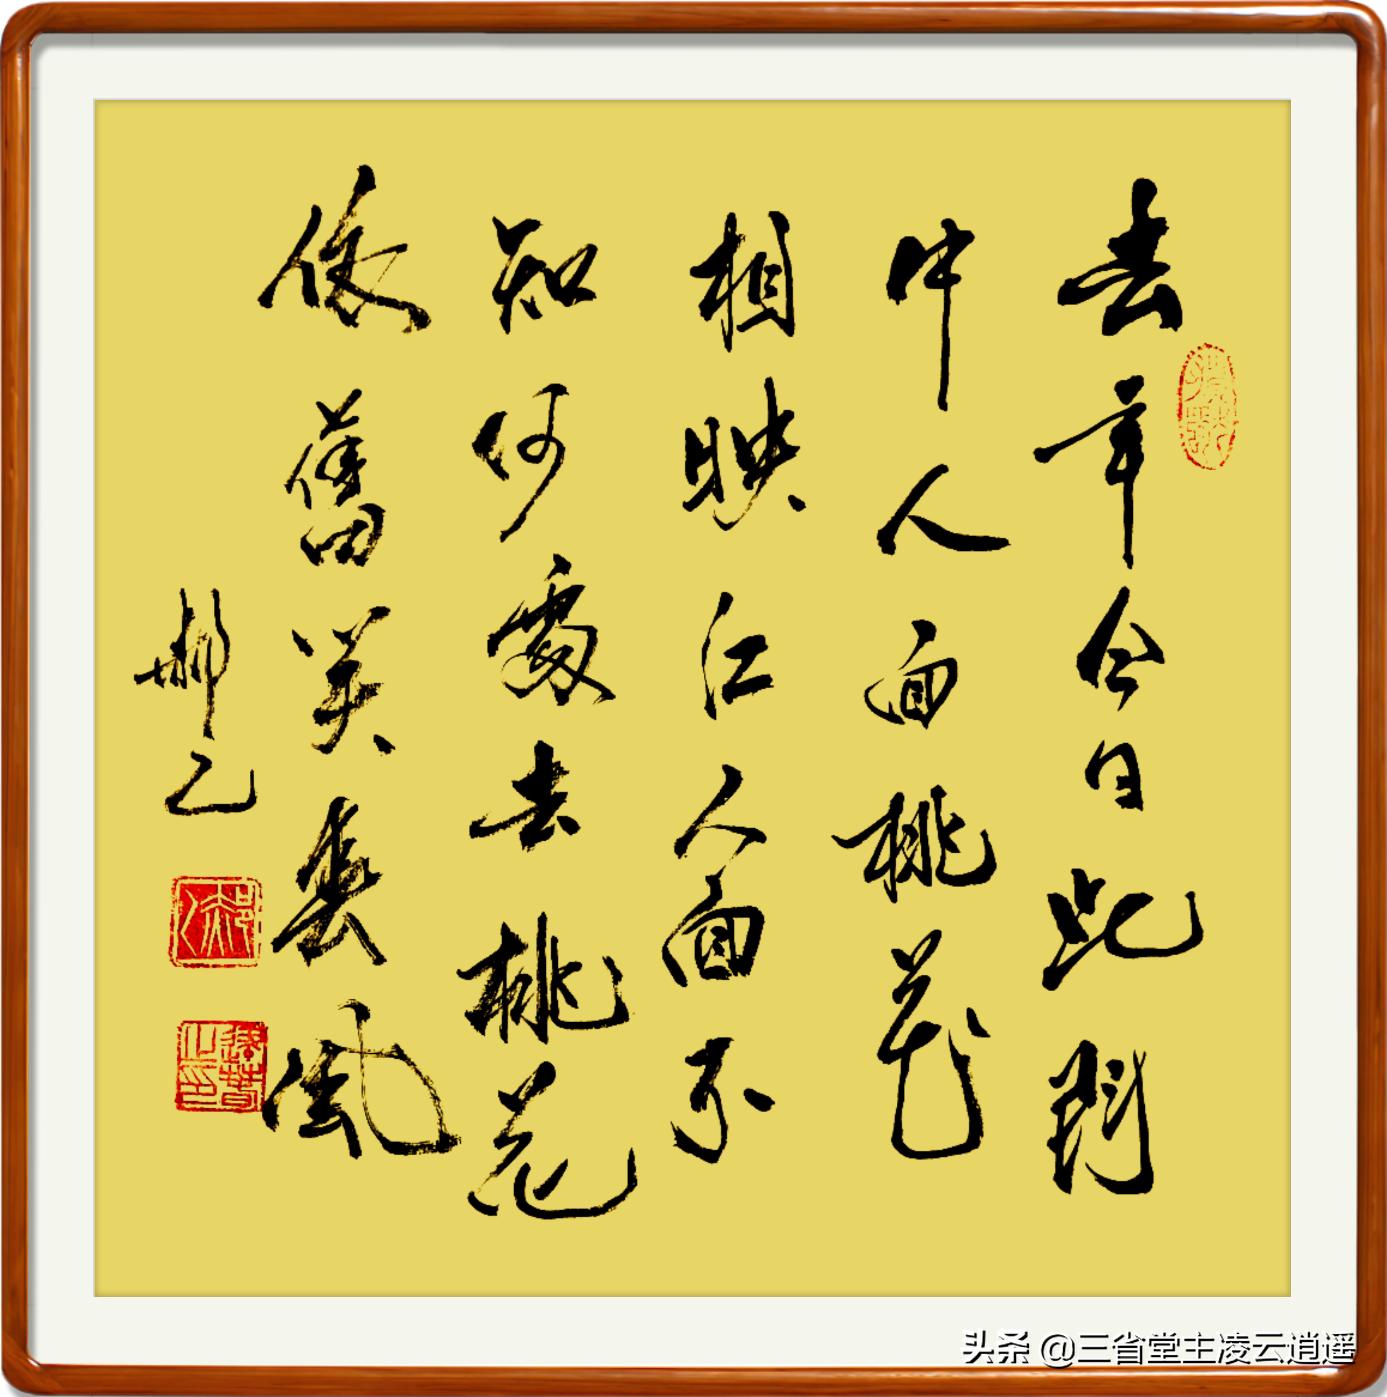 去年今日此門
中人面桃花
相映紅人面不
知何處去桃花
依舊笑春風
头条 @三省堂主凌云逍遥